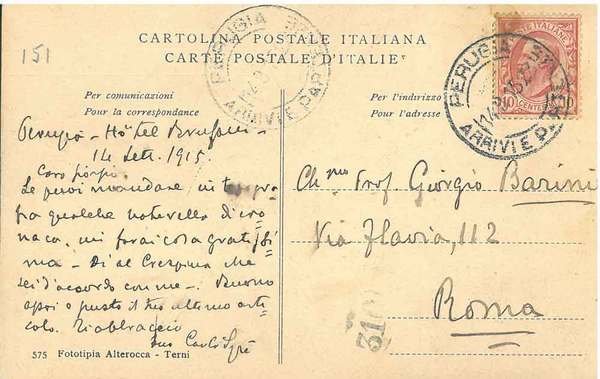 151
CARTOLINA POSTALE ITALIANA
CARTE POSTALE D'ITALIE
PERUGIA
ARRIVI E PAR
PERUGIA
14.9.15
ARRIVI E PAR
10 CENTES
Per comunicazioni
Pour la correspondance
Per l'indirizzo
Pour l'adresse
Perugia - Hôtel Brufani -
14 Sett. 1915.
Caro
Se puoi mandare in
fra qualche noterella di cro
naca, mi farai cosa gratissi
ma - Di al che
sei d'accordo con me -. Buono
il tuo ultimo arti
colo. Riabbraccio
tuo Carlo
Ch.mo Prof. Giorgio Barini
Via Flavia, 112
Roma
310
575 Fototipia Alterocca - Terni